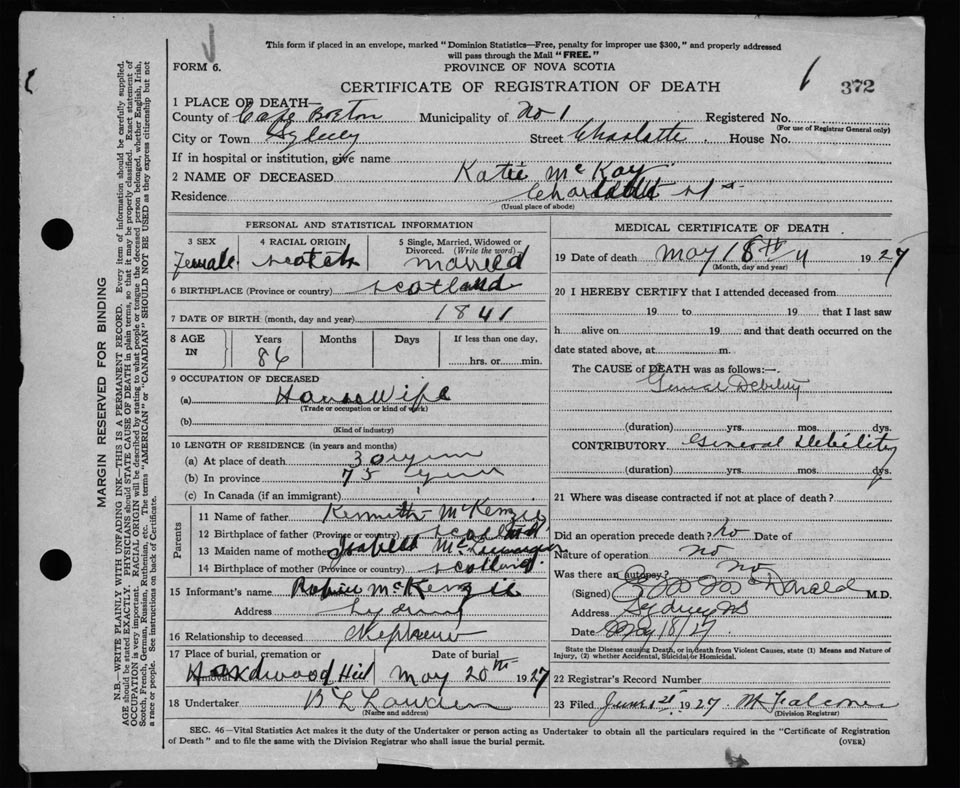 This form if placed in an envelope, marked "Dominion Statistics—Free, penalty for improper use $300," and properly addressed
will pass through the Mail "FREE."
FORM 6.
PROVINCE OF NOVA SCOTIA
CERTIFICATE OF REGISTRATION OF DEATH
372
1 PLACE OF DEATH—
County of Cape Breton Municipality of No 1 Registered No.
(For use of Registrar General only)
City or Town Sydney Street Charlotte House No.
If in hospital or institution, give name
2 NAME OF DECEASED Katie McKay
Residence Charlotte St
(Usual place of abode)
PERSONAL AND STATISTICAL INFORMATION
3 SEX 4 RACIAL ORIGIN 5 Single, Married, Widowed or
Divorced. (Write the word)
Female Scotch Married
6 BIRTHPLACE (Province or country) Scotland
7 DATE OF BIRTH (month, day and year) 1841
8 AGE IN Years Months Days If less than one day,
86 hrs. or min.
9 OCCUPATION OF DECEASED
(a) House Wife
(Trade or occupation or kind of work)
(b)
(Kind of industry)
10 LENGTH OF RESIDENCE (in years and months)
(a) At place of death 30 years
(b) In province 75 years
(c) In Canada (if an immigrant)
Parents
11 Name of father Kenneth McKenzie
12 Birthplace of father (Province or country) Scotland
13 Maiden name of mother Isabella
14 Birthplace of mother (Province or country) Scotland.
15 Informant's name McKenzie
Address Sydney
16 Relationship to deceased Nephew
17 Place of burial, cremation or Date of burial
removal
Hardwood Hill May 20th 1927
18 Undertaker
(Name and address)
MEDICAL CERTIFICATE OF DEATH
19 Date of death May 18th 1927
(Month, day and year)
20 I HEREBY CERTIFY that I attended deceased from
19 to 19 that I last saw
h alive on 19 and that death occurred on the
date stated above, at m.
The CAUSE of DEATH was as follows:—
General Debility
(duration) yrs. mos. dys.
CONTRIBUTORY General Debility
(duration) yrs. mos. dys.
21 Where was disease contracted if not at place of death?
Did an operation precede death? No Date of
Nature of operation no
Was there an autopsy? No
(Signed) McDonald M.D.
Address Sydney NS
Date May 18/27
State the Disease causing Death, or in death from Violent Causes, state (1) Means and Nature of
Injury, (2) whether Accidental, Suicidal or Homicidal.
22 Registrar's Record Number
23 Filed June 1927
(Division Registrar)
SEC. 46—Vital Statistics Act makes it the duty of the Undertaker or person acting as Undertaker to obtain all the particulars required in the "Certificate of Registration
of Death" and to file the same with the Division Registrar who shall issue the burial permit. (OVER)
MARGIN RESERVED FOR BINDING
N.B.—WRITE PLAINLY, WITH UNFADING INK—THIS IS A PERMANENT RECORD. Every item of information should be carefully supplied.
AGE should be stated EXACTLY. PHYSICIANS should STATE CAUSE OF DEATH in plain terms, so that it may be properly classified. Exact statement of
OCCUPATION is very important. RACIAL ORIGIN will be described by stating to what people or tongue the deceased person belonged, whether English, Irish,
Scotch, French, German, Russian, Ruthenian, etc. The terms "AMERICAN" or "CANADIAN" SHOULD NOT BE USED as they express citizenship but not
a race or people. See instructions on back of Certificate.